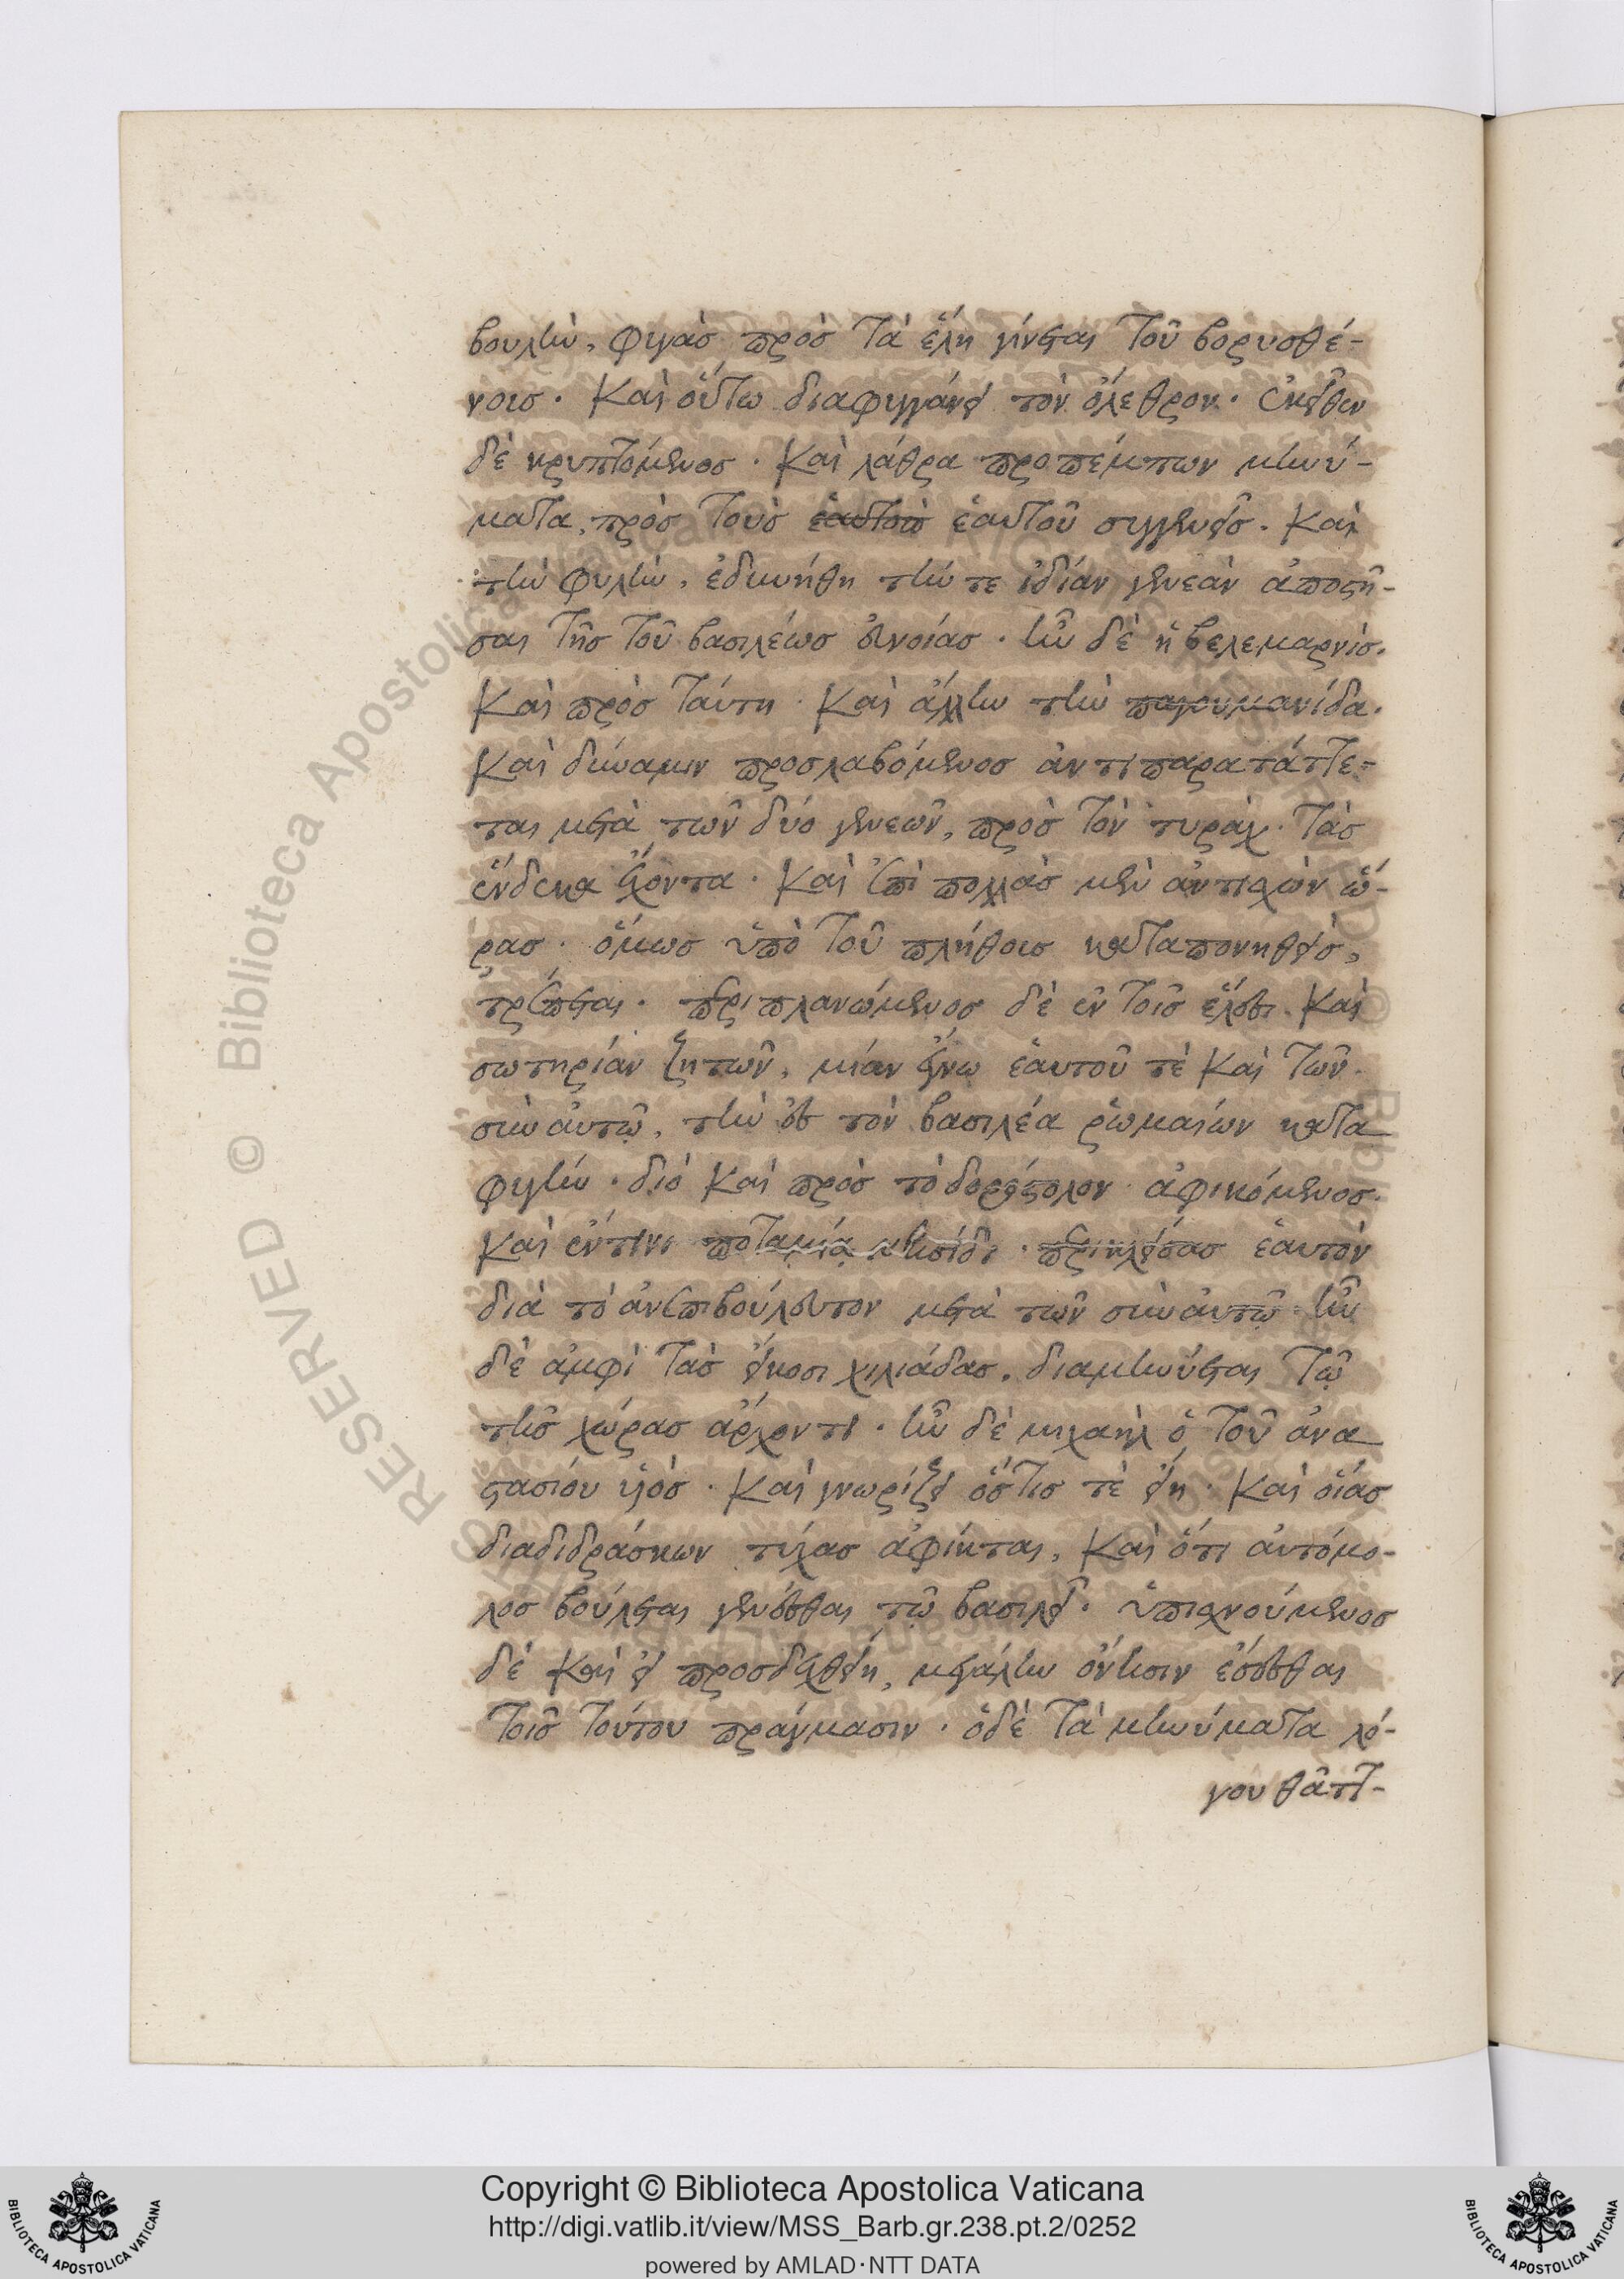 βουλὴν, φυγὰσ πρὸσ τὰ ἕλη γίνεται τοῦ βορυσθέ-
νουσ. καὶ οὕτω διαφυγγάνει τὸν ὄλεθρον. ἐκεῖθεν
δὲ κρυπτόμενοσ. καὶ λάθρα προπέμπων μηνύ-
ματα, πρὸσ τοὺσ ἑαυτοῦ συγγενεῖσ. καὶ
τὴν φυλὴν, ἐδυνήθη τήν τε ἰδίαν γενεὰν ἀποστῆ-
σαι τῆσ τοῦ βασιλέωσ εὐνοίασ. ἦν δὲ ἡ βελεμαρνὶσ.
καὶ πρὸσ ταύτη. καὶ ἄλλην τὴν παγουμανίδα.
καὶ δύναμιν προσλαβόμενοσ ἀντιπαρατάττε-
ται μετὰ τῶν δύο γενεῶν, πρὸσ τὸν τυράχ. τὰσ
ἕνδεκα ἔχοντα. καὶ ἐπὶ πολλὰσ μὲν ἀντισχὼν ὥ-
ρασ. ὅμωσ ὑπὸ τοῦ πλήθουσ καταπονηθεὶσ,
τρέπεται. περιπλανώμενοσ δὲ ἐν τοῖσ ἕλεσι. καὶ
σωτηρίαν ζητῶν, μίαν ἔγνω ἑαυτοῦ τὲ καὶ τῶν
σὺν αὐτῷ, τὴν εἰσ τὸν βασιλέα ῥωμαίων κατα
φυγήν. διὸ καὶ πρὸσ τὸ δορόστολον ἀφικόμενοσ.
καὶ ἔν τινι ποταμίᾳ νησίδι. περικλείσασ ἑαυτὸν
διὰ τὸ ἀνεπιβούλευτον μετὰ τῶν σὺν αὐτῷ ἦν
δὲ ἀμφὶ τὰσ εἴκοσι χιλιάδασ. διαμηνύεται τῷ
τῆσ χώρασ ἄρχοντι. ἦν δὲ μιχαὴλ ὁ τοῦ ἀνα
στασίου υἱόσ. καὶ γνωρίζει ὅστισ τὲ εἴη. καὶ οἵασ
διαδιδράσκων τύχασ ἀφίκται, καὶ ὅτι αὐτόμο-
λοσ βούλεται γενέσθαι τῷ βασιλεῖ. ὑπισχνούμενοσ
δὲ καὶ εἰ προσδεχθείη, μεγάλην ὄνησιν ἔσεσθαι
τοῖσ τούτου πράγμασιν. ὁ δὲ τὰ μηνύματα λό-
γου θᾶττ-
Copyright © Biblioteca Apostolica Vaticana
http://digi.vatlib.it/view/MSS_Barb.gr.238.pt.2/0252
powered by AMLAD·NTT DATA
BIBLIOTECA APOSTOLICA VATICANA
BIBLIOTECA APOSTOLICA VATICANA